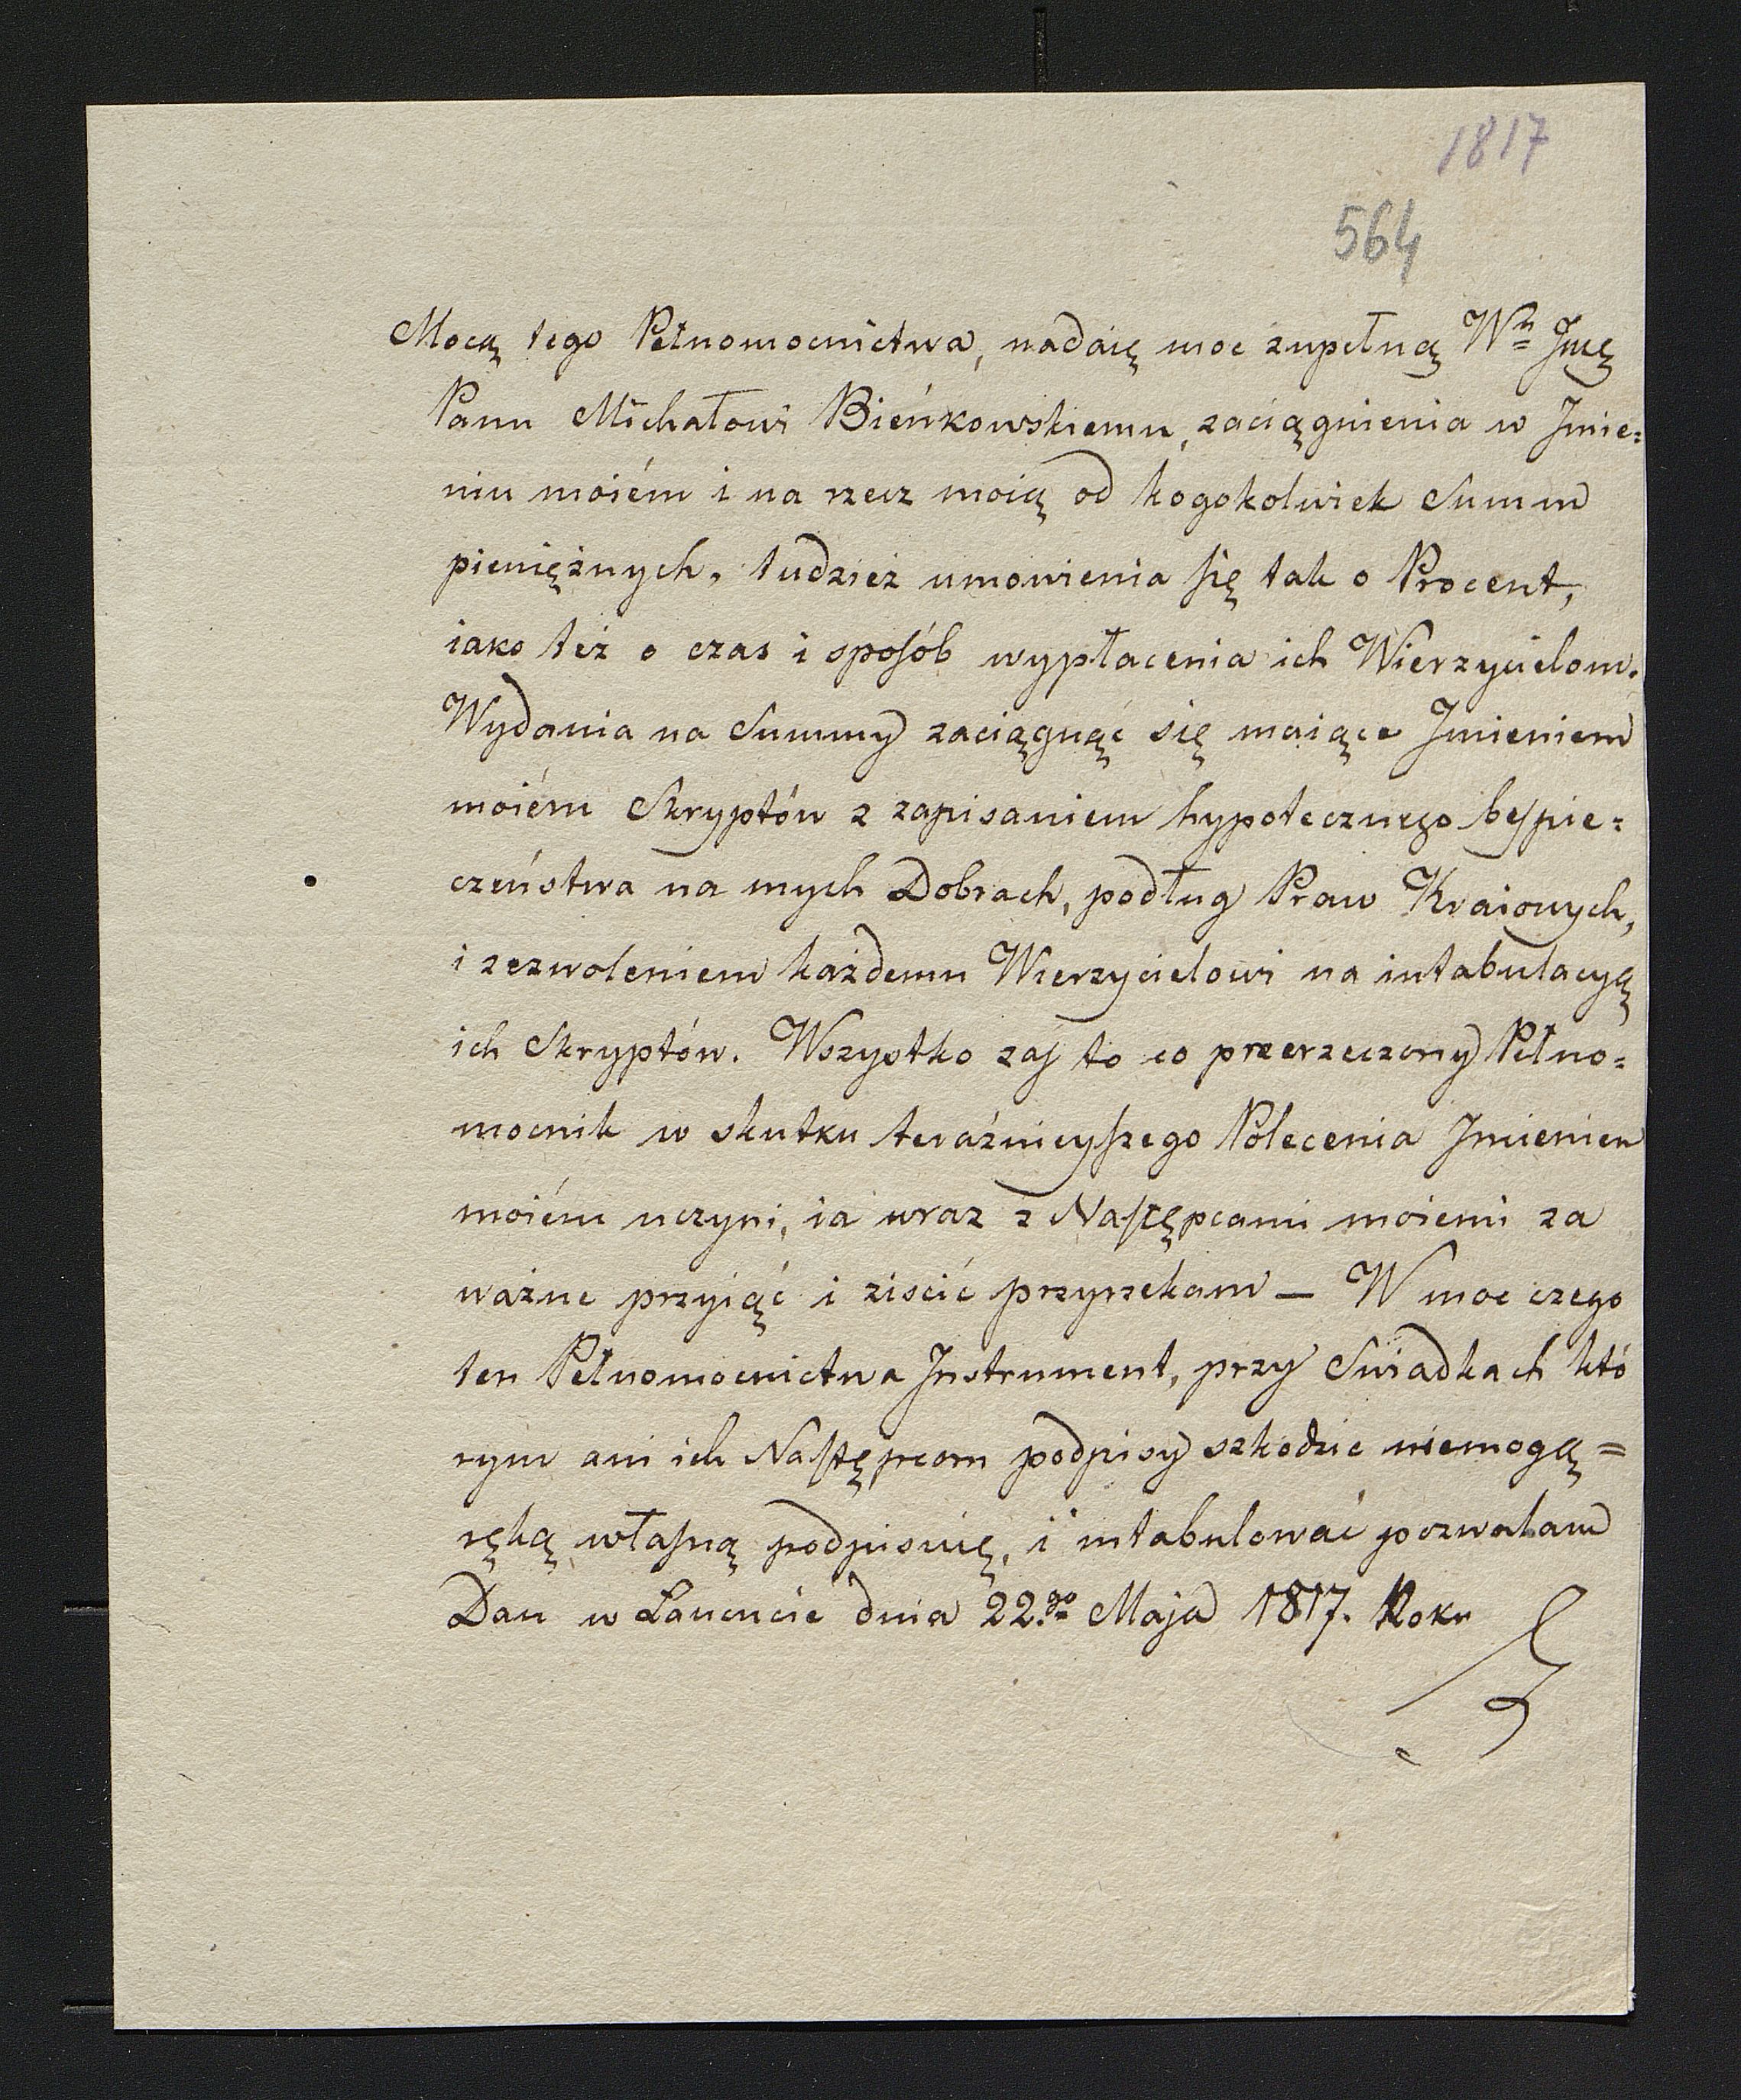 1817
564
Mocą tego Pełnomocnictwa, nadaię moc zupełną Wu Jmę
Panu Michałowi Bieńkowskiemu, zaciągnienia w Jmie=
niu moiém i na rzecz moią od kogokolwiek Summ
pieniężnych, tudzież umowienia się tak o Procent,
iako też o czas i sposób wypłacenia ich Wierzycielom.
Wydania na Summy zaciągnąć się maiące Jmieniem
moiém Skryptów z zapisaniem hypotecznego bespie=
czeństwa na mych Dobrach, podług Praw Kraiowych,
i zezwoleniem każdemu Wierzycielowi na intabulacyą
ich Skryptów. Wszystko zas to co przerzeczony Pełno=
mocnik w skutku teraźnieyszego Polecenia Jmieniem
moiém uczyni, ia wraz z Następcami moiemi za
ważne przyiąć i ziscić przyrzekam — W moc czego
ten Pełnomocnictwa Jnstrument, przy Swiadkach któ
rym ani ich Następcom podpisy szkodzic niemogą=
ręką własną podpisuię, i intabulować pozwalam
Dan w Lancucie dnia 22.go Maja 1817. Roku